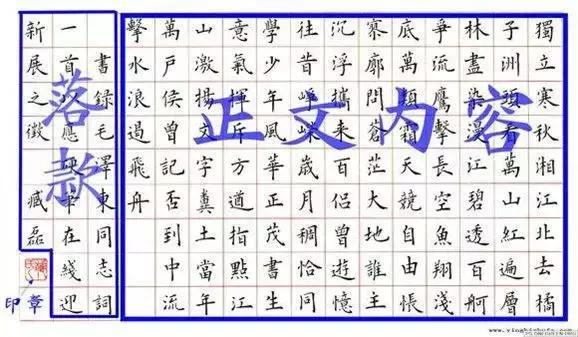 獨立寒秋湘江北去橘
子洲頭看萬山紅遍層
林盡染漫江碧透百舸
爭流鷹擊長空魚翔淺
底萬類霜天競自由悵
寥廓問蒼茫大地誰主
沉浮攜來百侶曾遊憶
往昔崢嶸歲月稠恰同
學少年風華正茂書生
意氣揮斥方遒指點江
山激揚文字糞土當年
萬戶侯曾記否到中流
擊水浪遏飛舟
書錄毛澤東同志詞
一首以應硬书在綫迎
新展之徵 臧磊
正文内容
落款
印章